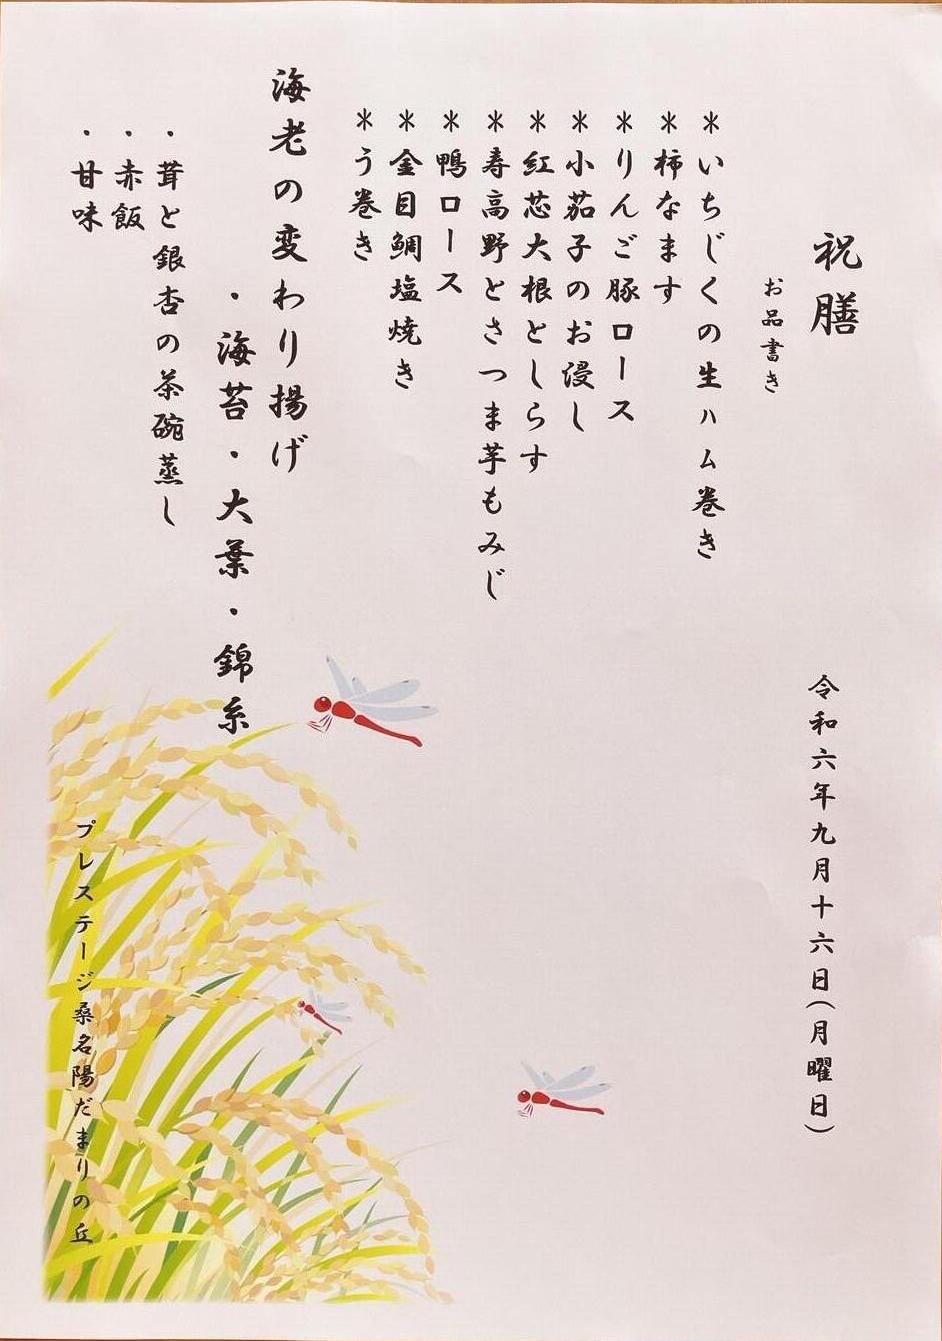 祝膳
令和六年九月十六日(月曜日)
お品書き
＊いちじくの生ハム巻き
＊柿なます
＊りんご豚ロース
＊小茄子のお浸し
＊紅芯大根としらす
＊寿高野とさつま芋もみじ
＊鴨ロース
＊金目鯛塩焼き
＊う巻き
海老の変わり揚げ
・海苔・大葉・錦糸
・茸と銀杏の茶碗蒸し
・赤飯
・甘味
プレステージ桑名陽だまりの丘